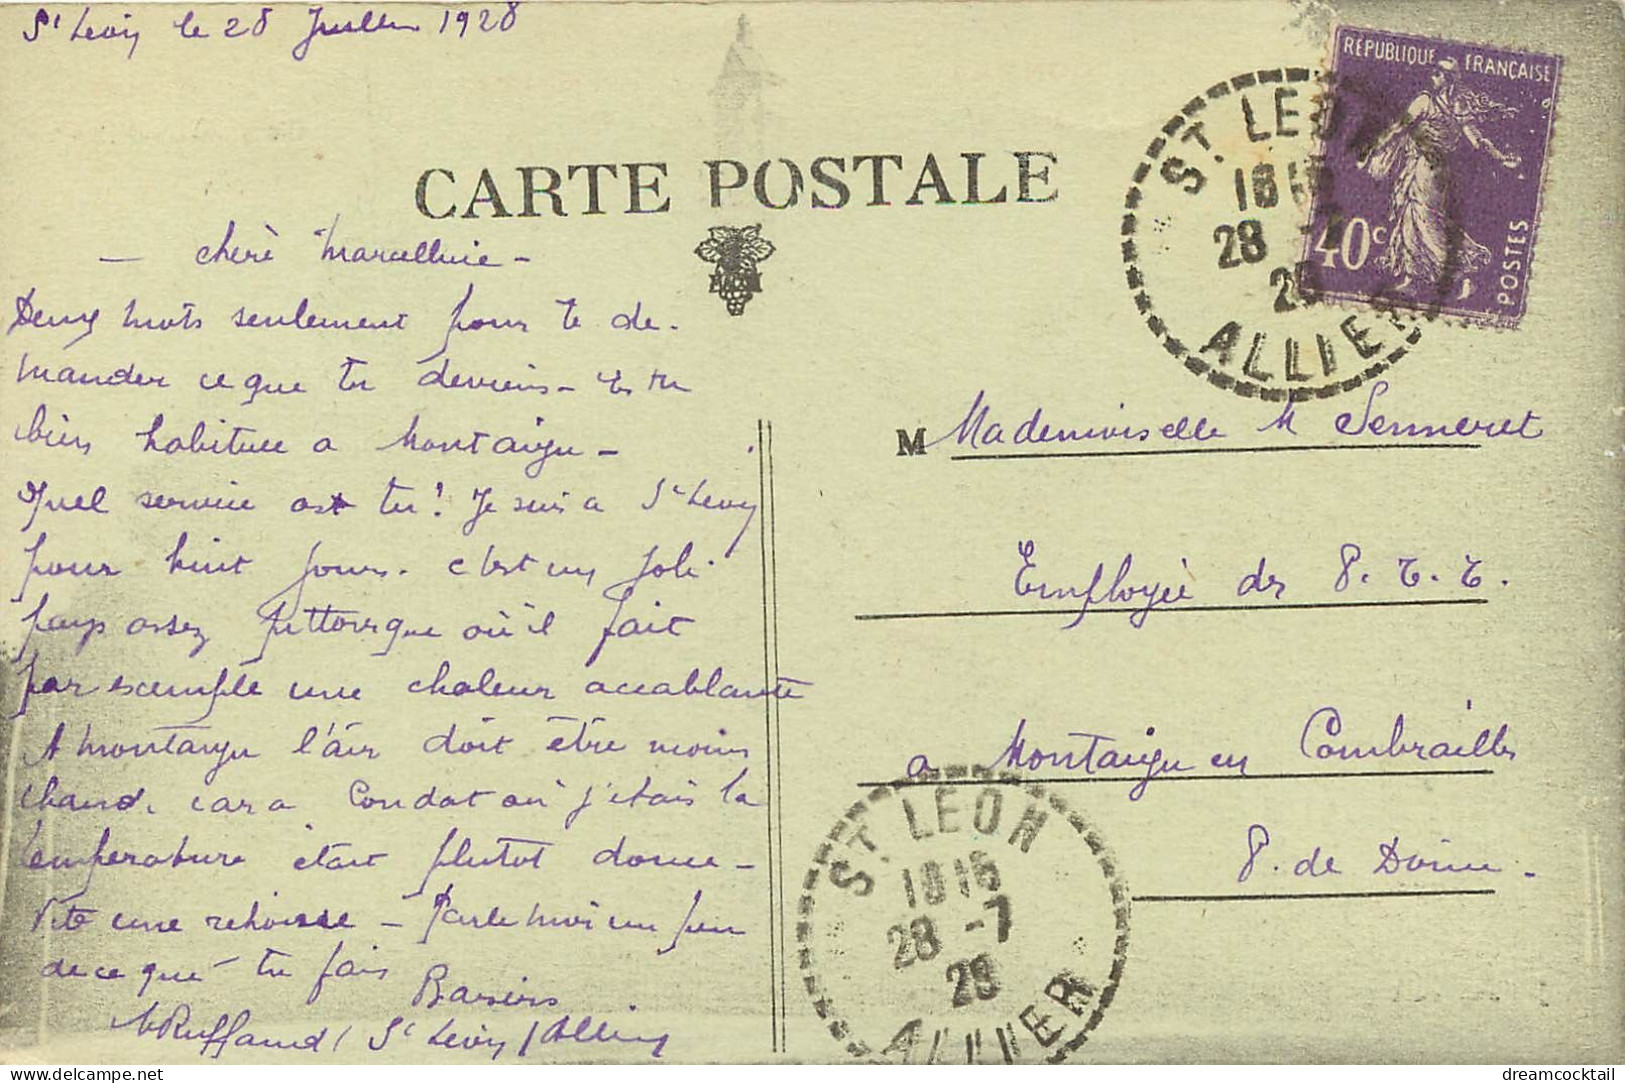 St Leon le 28 Juillet 1928
RÉPUBLIQUE FRANÇAISE
40c
POSTES
ST. LEON
1615
28 -7
28
ALLIER
CARTE POSTALE
— chère Marcelline —
Deux mots seulement pour te de-
mander ce que tu deviens — Es tu
bien habituée a Montaigu —
Quel service as tu! Je suis a St Leon
pour huit jours. c'est un joli
pays assez pittoresque où il fait
par exemple une chaleur accablante
A montaigu l'air doit être moins
chaud, car a Condat où j'étais la
température était plutot douce —
Vite une réponse — Parle moi un peu
de ce que tu fais Baisers
M Ruffaud / St Leon / Allier
M Mademoiselle M Senneret
Employée des P. T. T.
a Montaigu en Combrailles
P. de Dôme.
ST. LEON
1615
28 -7
28
ALLIER
dreamcocktail